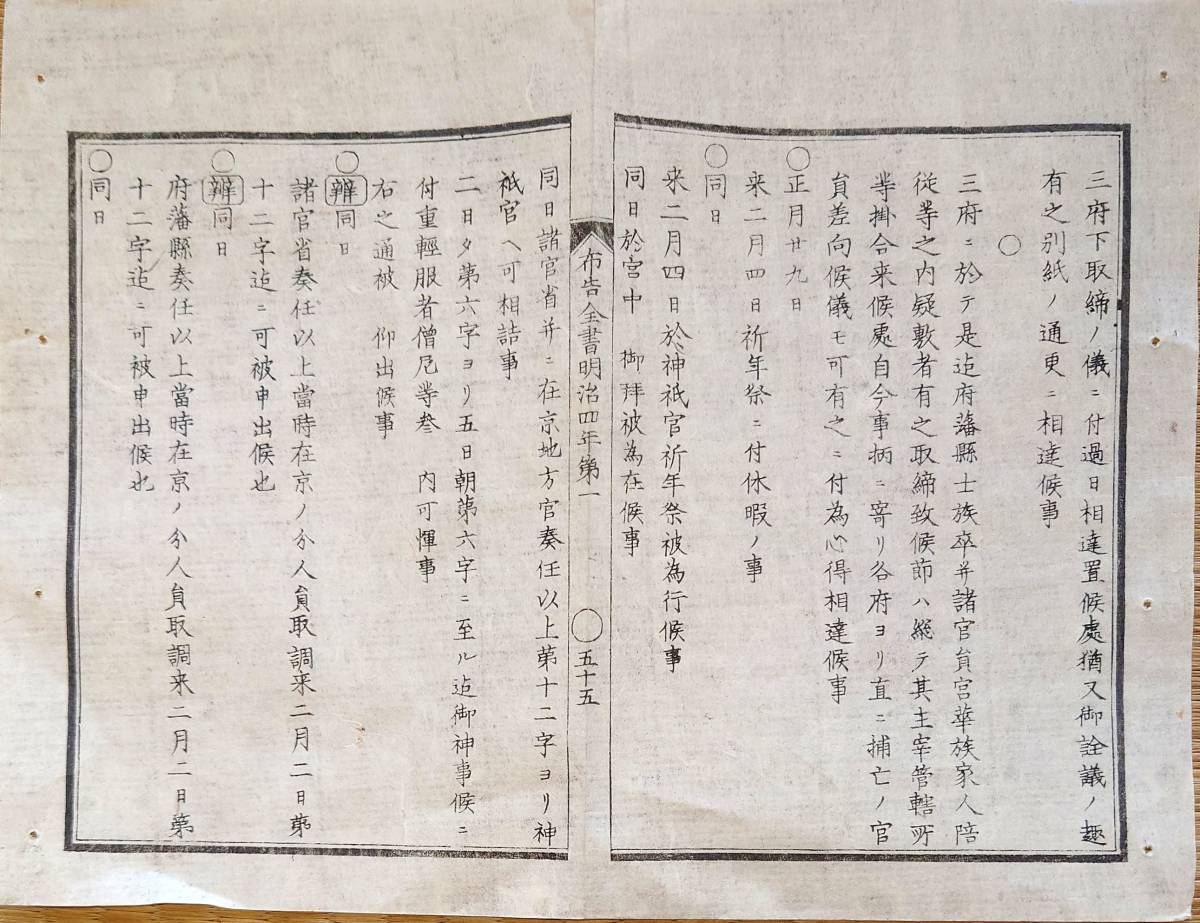 三府下取締ノ儀ニ付過日相達置候處猶又御詮議ノ趣
有之別紙ノ通更ニ相達候事
○
三府ニ於テ是迠府藩縣士族卒并諸官員宮華族家人陪
従等之内疑敷者有之取締致候節ハ総テ其主宰管轄所
等掛合来候處自今事柄ニ寄リ各府ヨリ直ニ捕亡ノ官
員差向候儀モ可有之ニ付為心得相達候事
○正月廿九日
来二月四日祈年祭ニ付休暇ノ事
○同日
来二月四日於神祇官祈年祭被為行候事
同日於宮中 御拜被為在候事
布告全書明治四年第一 ○ 五十五
同日諸官省并ニ在京地方官奏任以上第十二字ヨリ神
祇官ヘ可相詰事
二日夕第六字ヨリ五日朝第六字ニ至ル迠御神事候ニ
付重輕服者僧尼等参 内可憚事
右之通被 仰出候事
○辨同日
諸官省奏任以上當時在京ノ分人員取調来二月二日第
十二字迠ニ可被申出候也
○辨同日
府藩縣奏任以上當時在京ノ分人員取調来二月二日第
十二字迠ニ可被申出候也
○同日